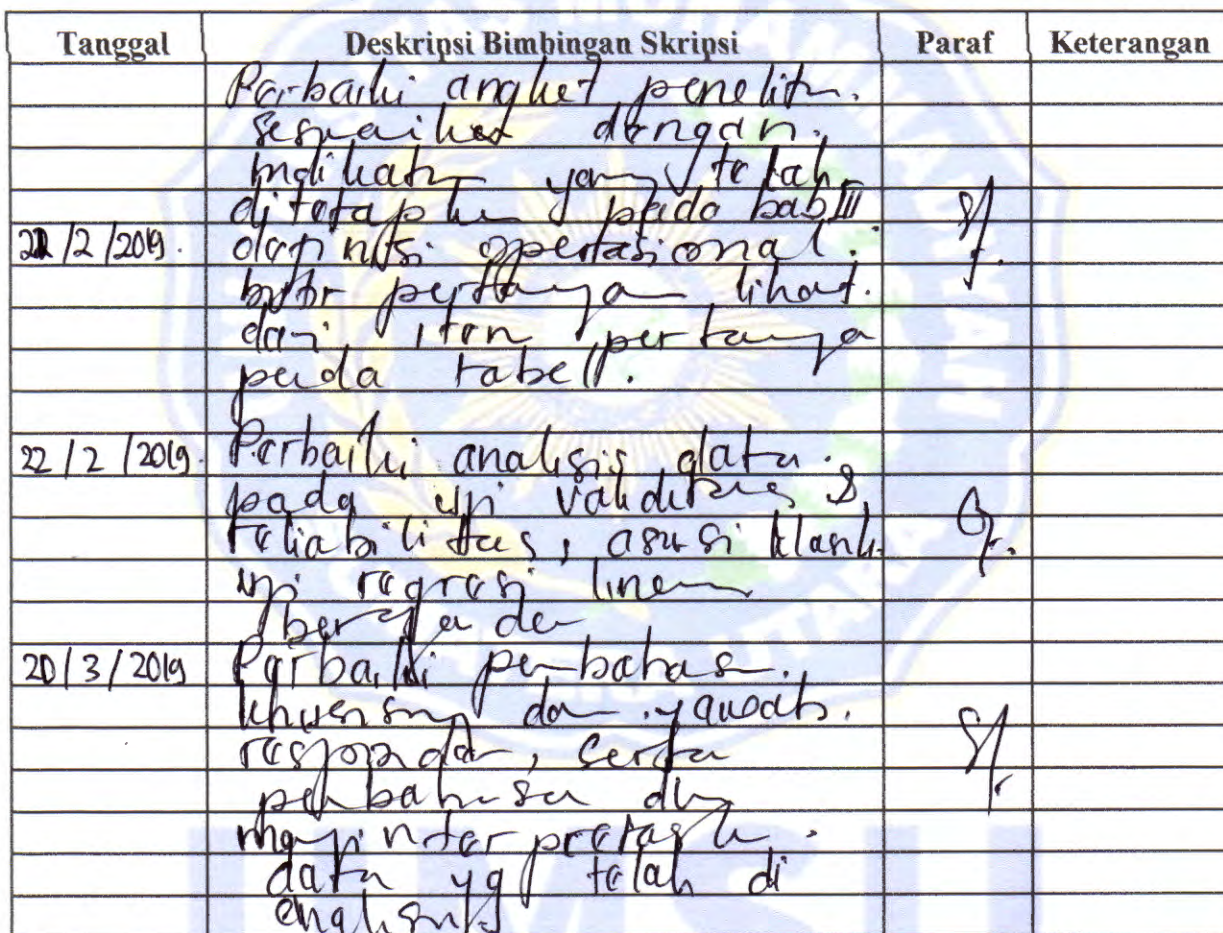 Tanggal Deskripsi Bimbingan Skripsi Paraf Keterangan
Perbaiki angket penelitn.
sesuaikan dengan
indikator yang telah
ditetapkn pada bab III
22/2/2019. definisi operasional.
butir pertanyaan lihat
dari item pertanya
pada tabel.
22/2/2019. Perbaiki analisis data
pada uji validitas &
reliabilitas, asumsi klasik
uji regresi linear
berganda
20/3/2019 Perbaiki pembahasan.
dan jawab.
responden, serta
pembahasan dlm
menginterpretasik
data yg telah di
analisis
UMSU